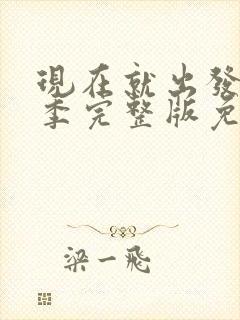 現在就出發
季完整版免
梁一飛